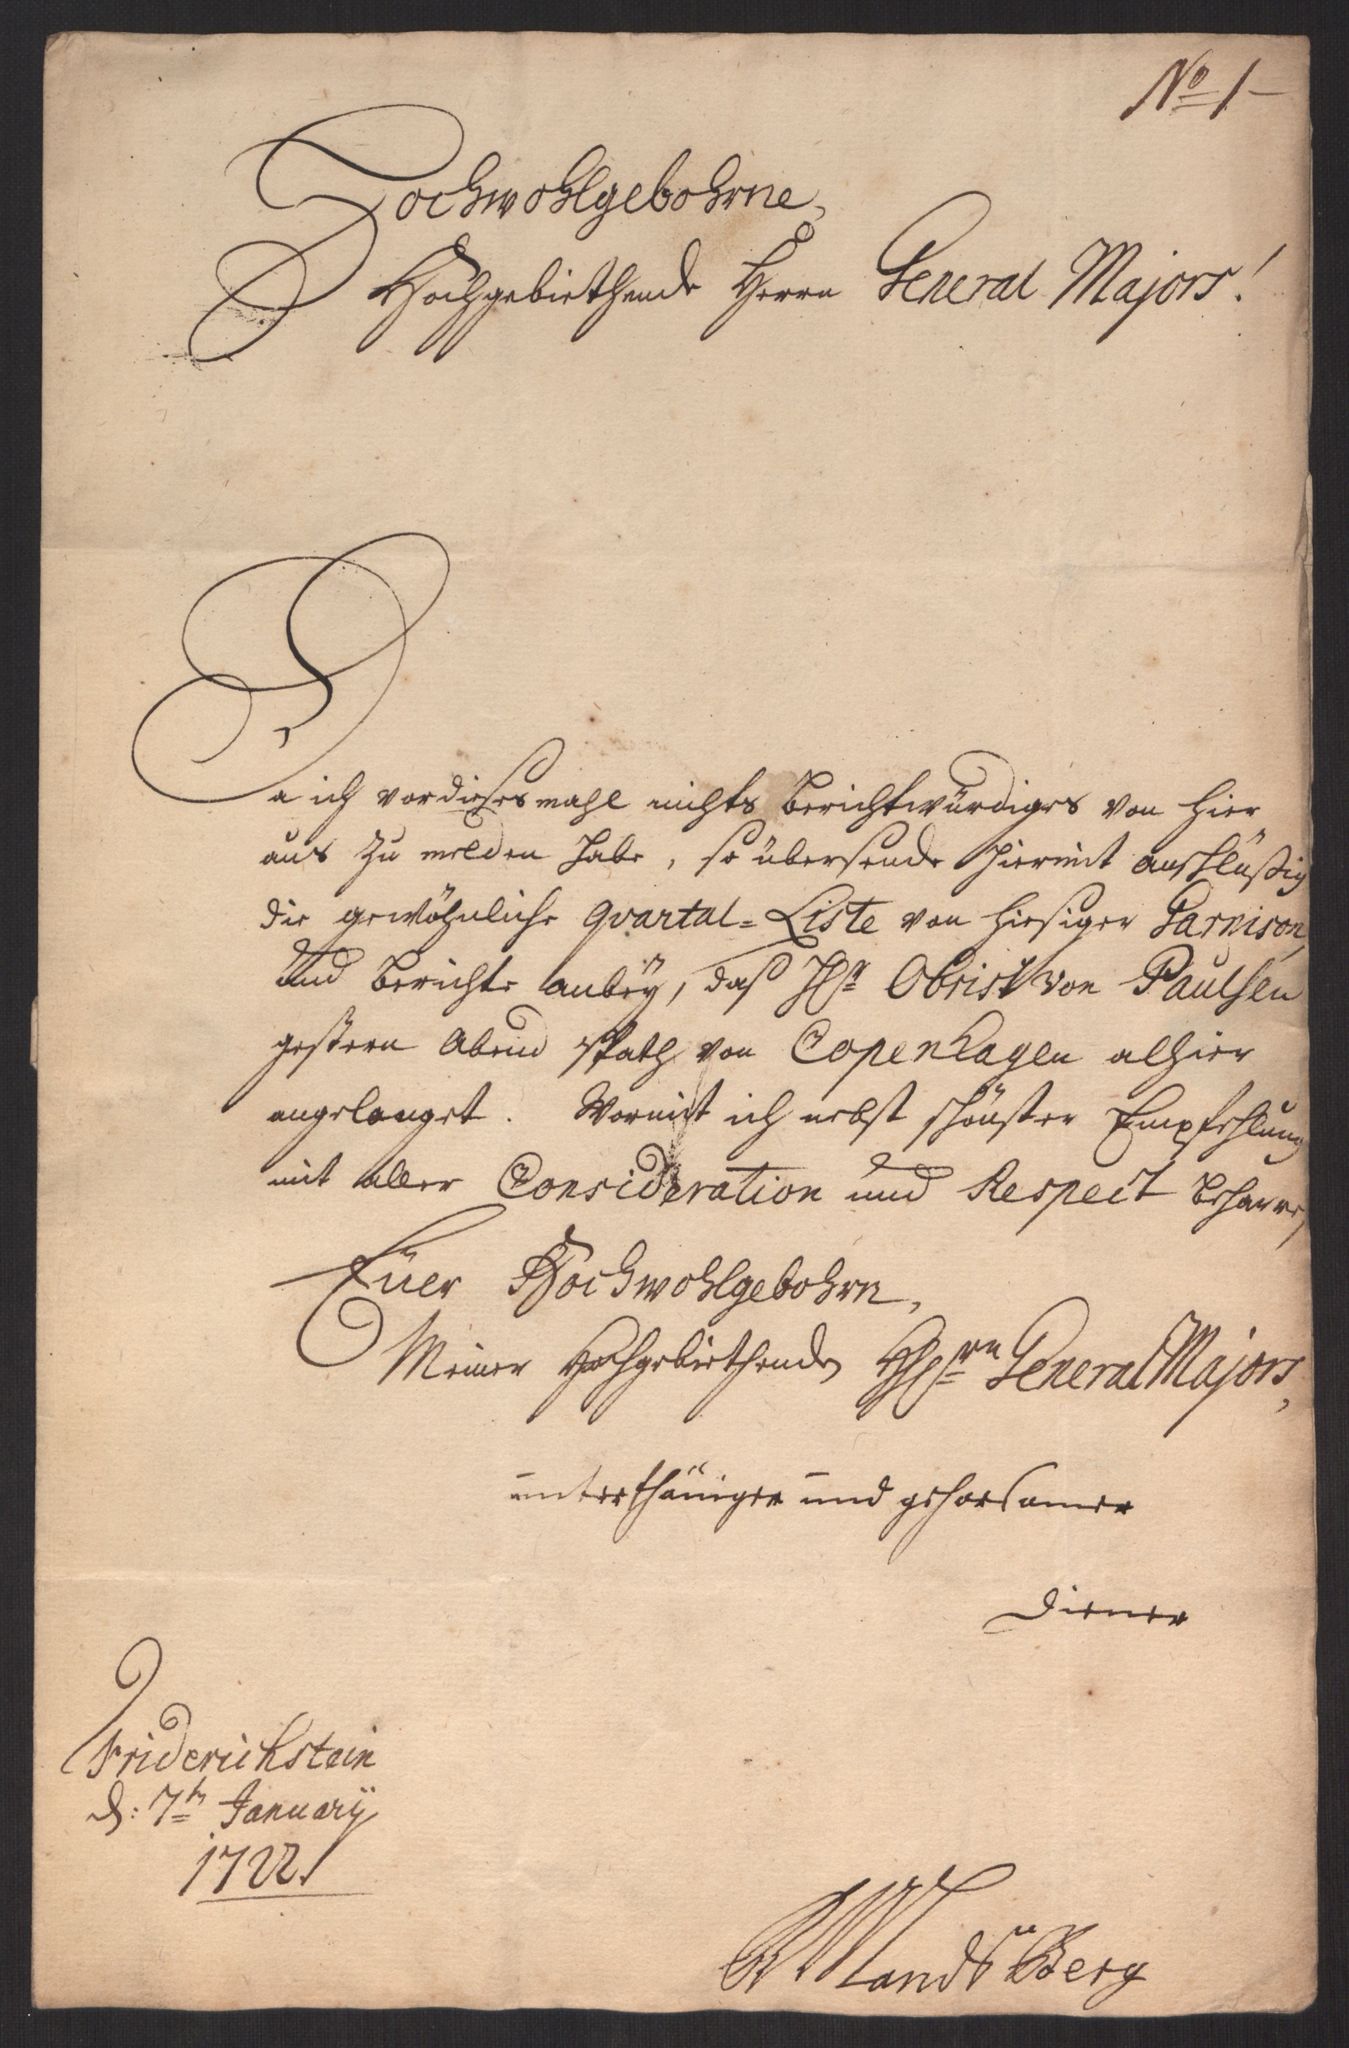 No 1
Hochwohlgebohrne,
Hochgebiethende Herrn General Majors!
Da ich vor dieses mahl nichts Berichtwürdiges von hier
aus zu melden habe, so übersende hiermit
die gewöhnliche Qvartal-Liste von hiesiger Garnison,
und berichte anbey, daß Hr Obrist von Paulsen
gestern Abend spath von Copenhagen alhier
angelanget. Wormit ich nebst schönster Empfehlung
mit aller Consideration und Respect beharre,
Euer Hochwohlgebohrn,
Meiner Hochgebiethenden General Majors,
unterthäniger und gehorsamer
Diener
Friderichstein
d: 7th January
1722.
Landsberg